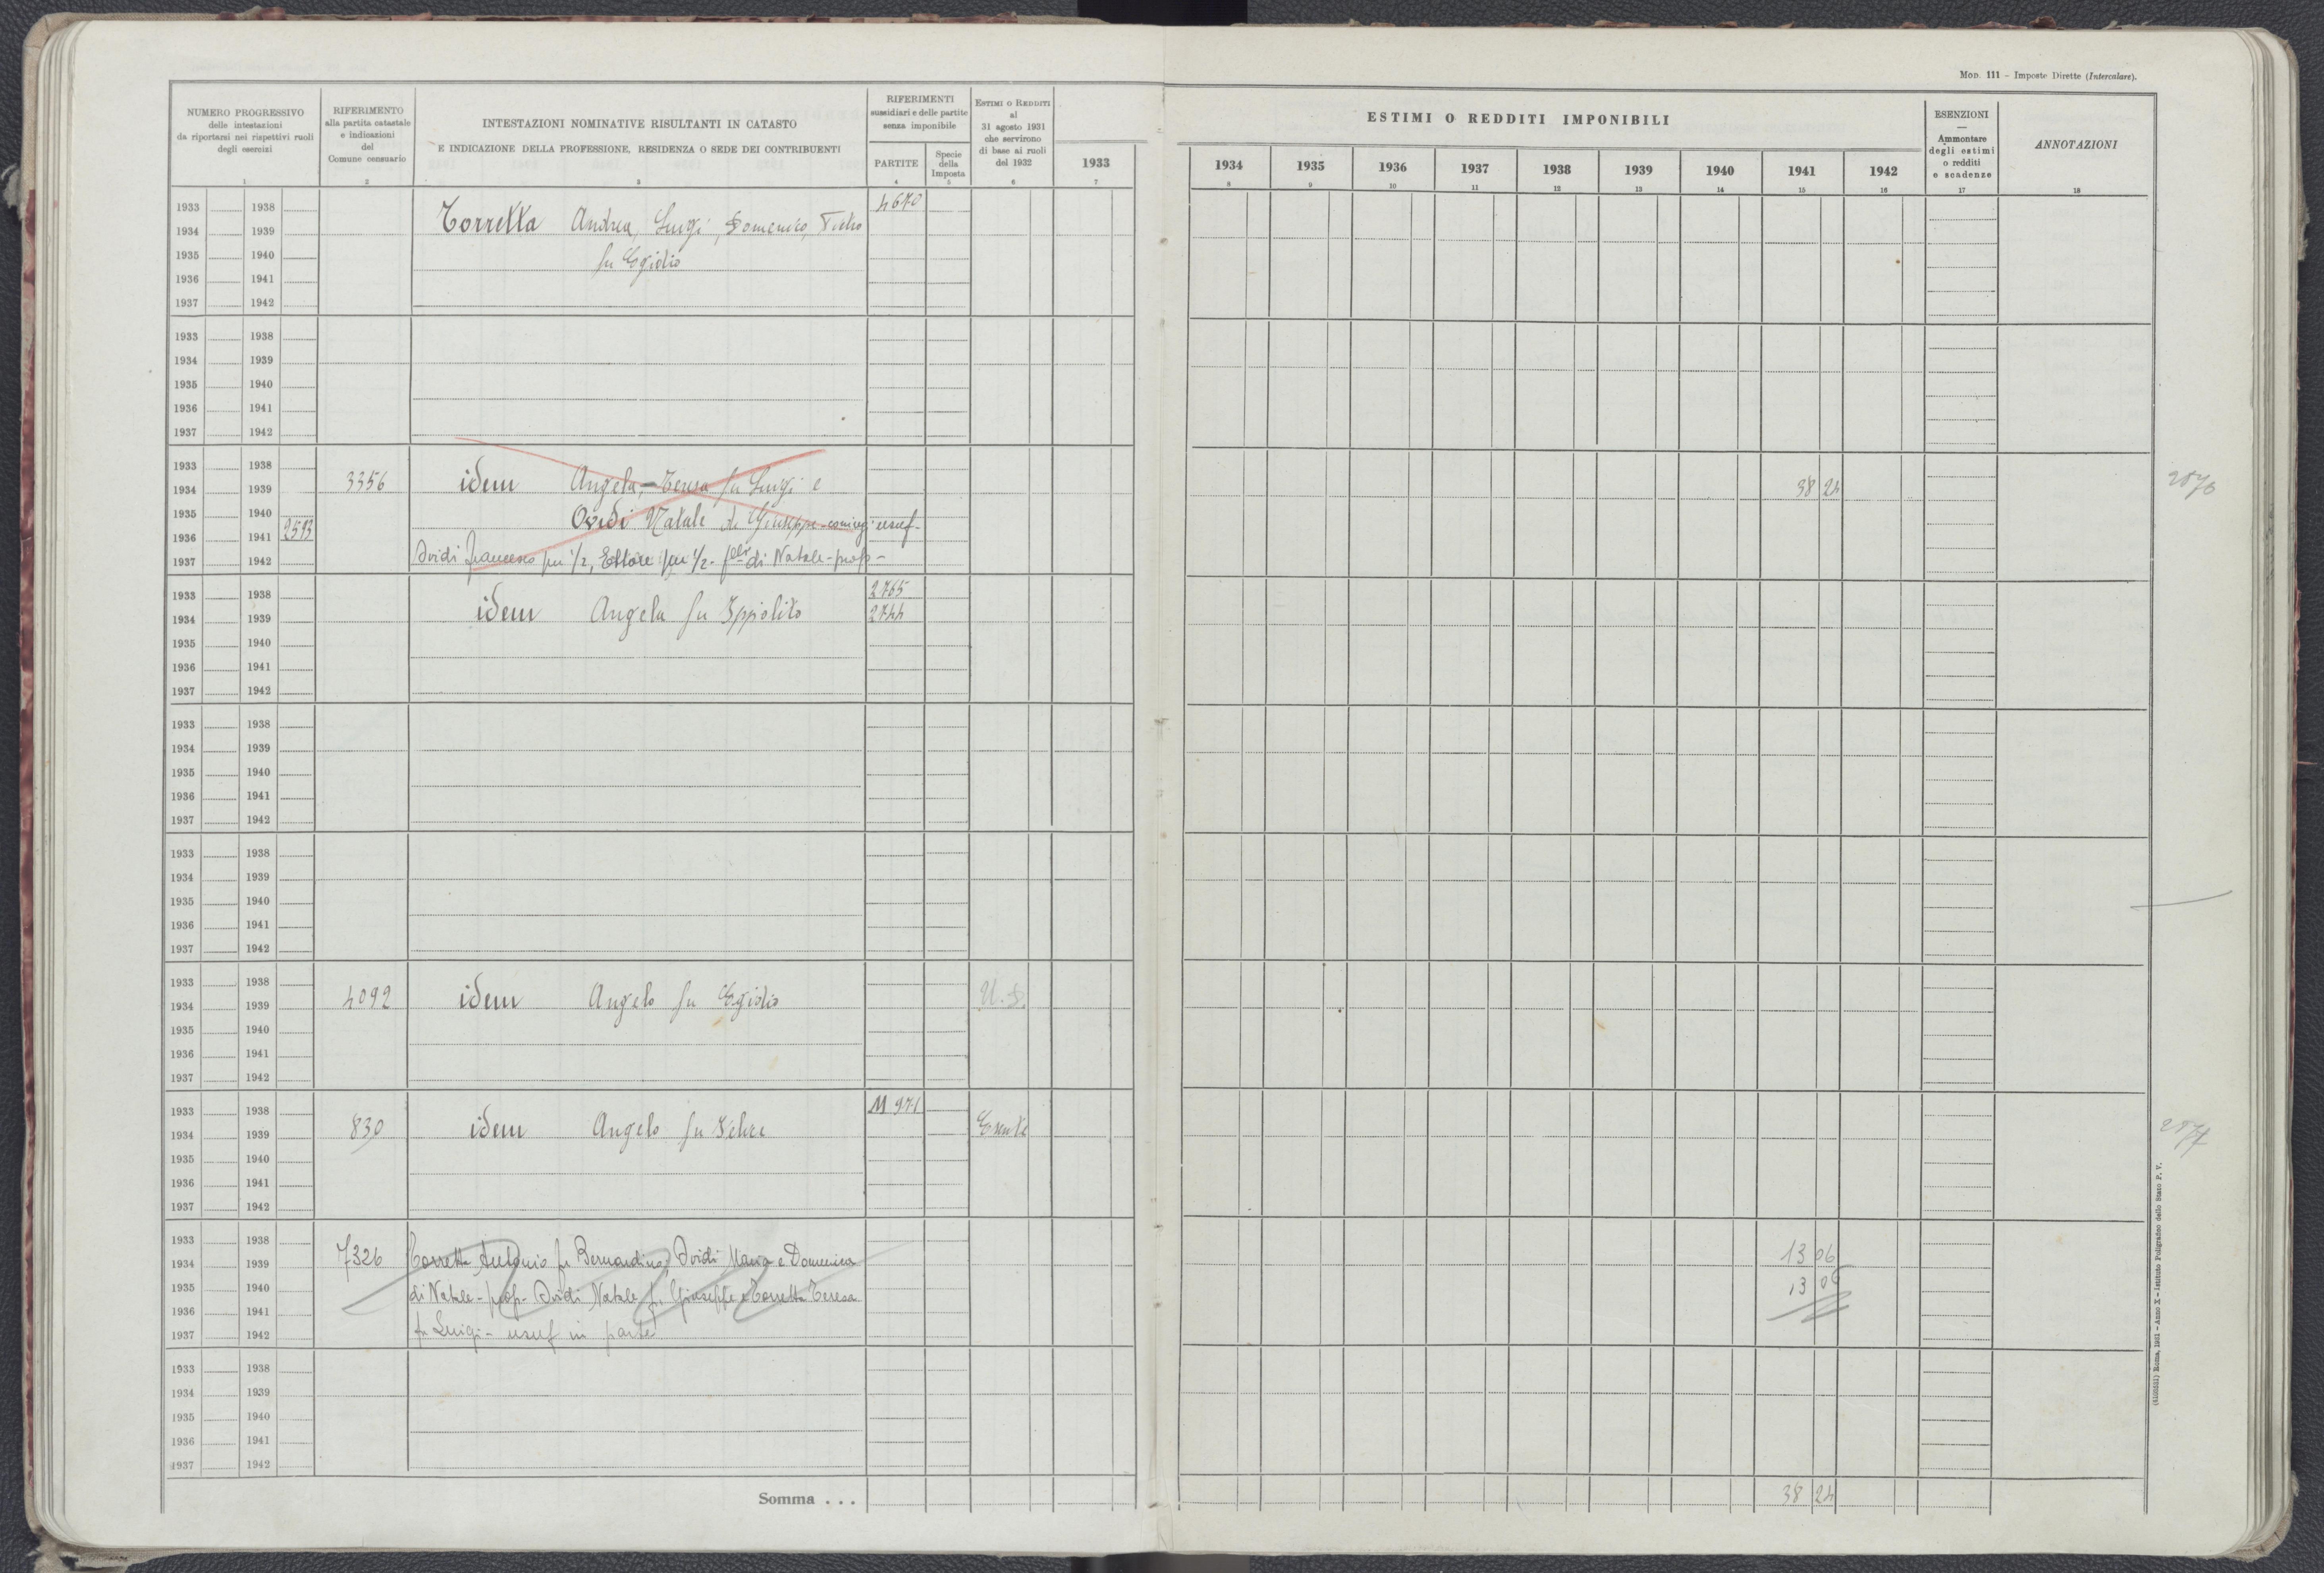 MOD. 111 - Imposte Dirette (Intercalare).
NUMERO PROGRESSIVO
delle intestazioni
da riportarsi nei rispettivi ruoli
degli esercizi
1
RIFERIMENTO
alla partita catastale
e indicazioni
del
Comune censuario
2
INTESTAZIONI NOMINATIVE RISULTANTI IN CATASTO
E INDICAZIONE DELLA PROFESSIONE, RESIDENZA O SEDE DEI CONTRIBUENTI
3
RIFERIMENTI
sussidiari e delle partite
senza imponibile
PARTITE
4
Specie
della
Imposta
5
ESTIMI O REDDITI
al
31 agosto 1931
che servirono
di base ai ruoli
del 1932
6
1933
7
ESTIMI O REDDITI IMPONIBILI
1934 1935 1936 1937 1938 1939 1940 1941 1942
8 9 10 11 12 13 14 15 16
ESENZIONI
Ammontare
degli estimi
o redditi
e scadenze
17
ANNOTAZIONI
18
1933 1938 4670
1934 1939 Torretta Andrea, Luigi, Domenico, Pietro
1935 1940 fu Egidio
1936 1941
1937 1942
1933 1938
1934 1939
1935 1940
1936 1941
1937 1942
1933 1938
1934 1939 3356 idem Angela, Teresa fu Luigi e 38 24 2876
1935 1940 Ovidi Natale di Giuseppe - coniugi usuf -
1936 1941 2593
1937 1942 Ovidi Francesco per 1/2, Ettore per 1/2 - flli di Natale - prop -
1933 1938 2765
1934 1939 idem Angela fu Ippolito 2744
1935 1940
1936 1941
1937 1942
1933 1938
1934 1939
1935 1940
1936 1941
1937 1942
1933 1938
1934 1939
1935 1940
1936 1941
1937 1942
1933 1938
1934 1939 4092 idem Angelo fu Egidio
1935 1940
1936 1941
1937 1942
1933 1938 M 971
1934 1939 830 idem Angelo fu Felice Esente 2877
1935 1940
1936 1941
1937 1942
1933 1938
1934 1939 7326 Torretta Antonio fu Bernardino, Ovidi Maria e Domenica 13 06
1935 1940 di Natale - prop - Ovidi Natale fu Giuseppe e Torretta Teresa 13 06
1936 1941
1937 1942 fu Luigi - usuf in parte
1933 1938
1934 1939
1935 1940
1936 1941
1937 1942
Somma . . . 38 24
(4105531) Roma, 1931 - Anno X - Istituto Poligrafico dello Stato P. V.